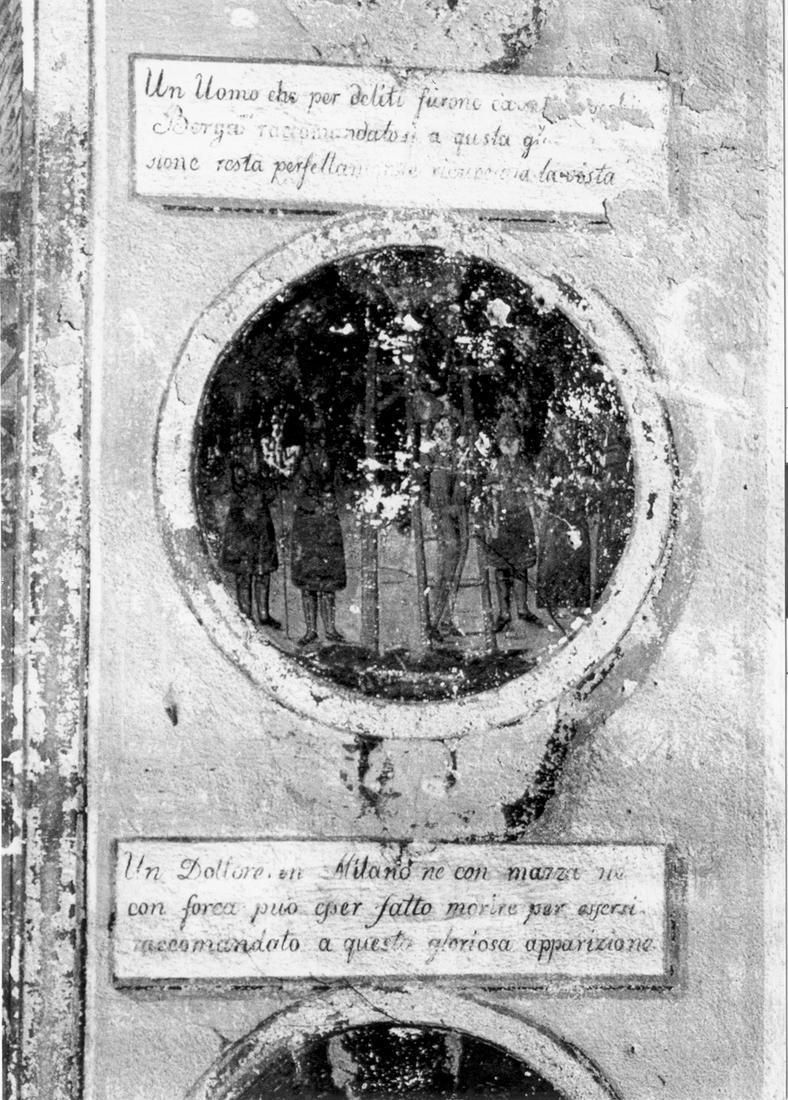 Un Uomo che per deliti furono
Berga raccomandatosi a qusta
sione resta la vista
Un Dottore in Milano ne con mazza ne
con forca può esser fatto morire per essersi
raccomandato a questa gloriosa apparizione